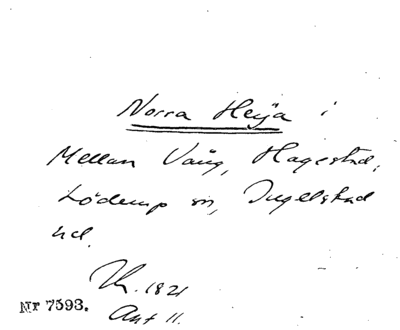 Norra Heija i
Mellan Vång, Hagestad,
Löderup sn, Ingelstad
hd.
1821
Nr 7593. Akt 11.